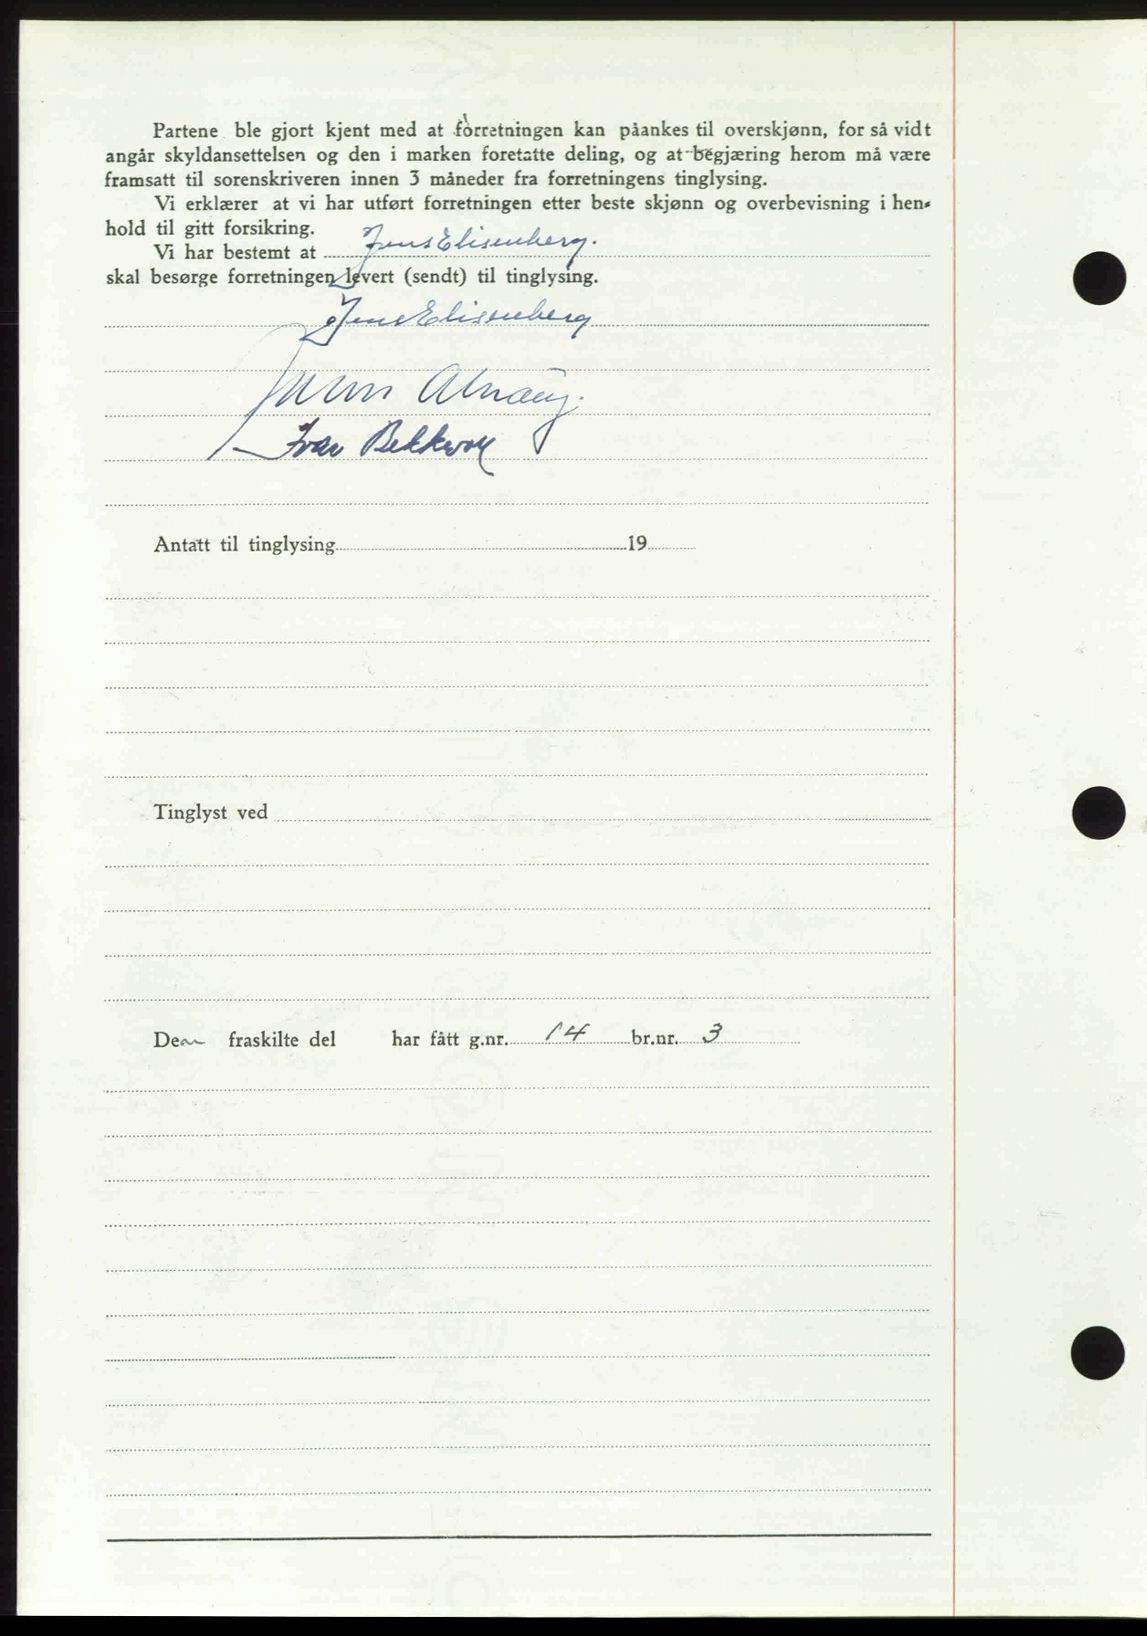 Partene ble gjort kjent med at forretningen kan påankes til overskjønn, for så vidt
angår skyldansettelsen og den i marken foretatte deling, og at begjæring herom må være
framsatt til sorenskriveren innen 3 måneder fra forretningens tinglysing.
Vi erklærer at vi har utført forretningen etter beste skjønn og overbevisning i hen-
hold til gitt forsikring.
Vi har bestemt at Jens Elisenberg.
skal besørge forretningen levert (sendt) til tinglysing.
Jens Elisenberg
Ivar Bekkvoll
Antatt til tinglysing 19
Tinglyst ved
Den fraskilte del har fått g.nr. 14 br.nr. 3